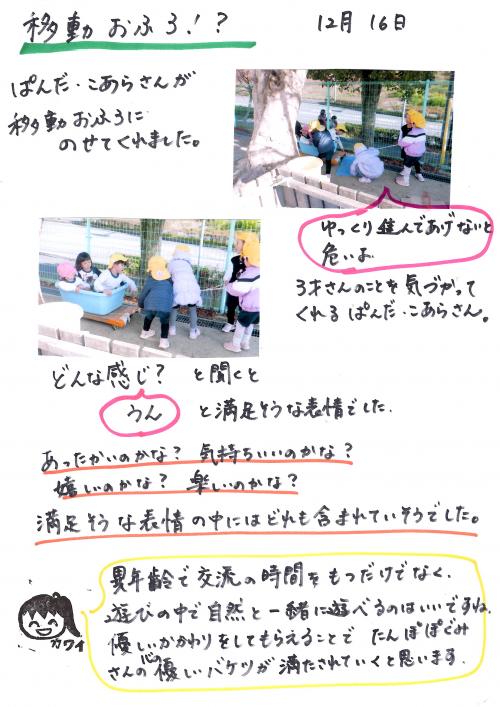 移動おふろ！？
12月16日
ぱんだ・こあらさんが
移動おふろに
のせてくれました。
ゆっくり進んであげないと
危いよ
3才さんのことを気づかって
くれるぱんだ・こあらさん。
どんな感じ？ と聞くと
うん と満足そうな表情でした.
あったかいのかな？ 気持ちいいのかな？
嬉しいのかな？ 楽しいのかな？
満足そうな表情の中にはどれも含まれていそうでした。
異年齢で交流の時間をもつだけでなく、
遊びの中で自然と一緒に遊べるのはいいですね。
優しいかかわりをしてもらえることで たんぽぽぐみ
さんの心の優しいバケツが満たされていくと思います.
カワイ